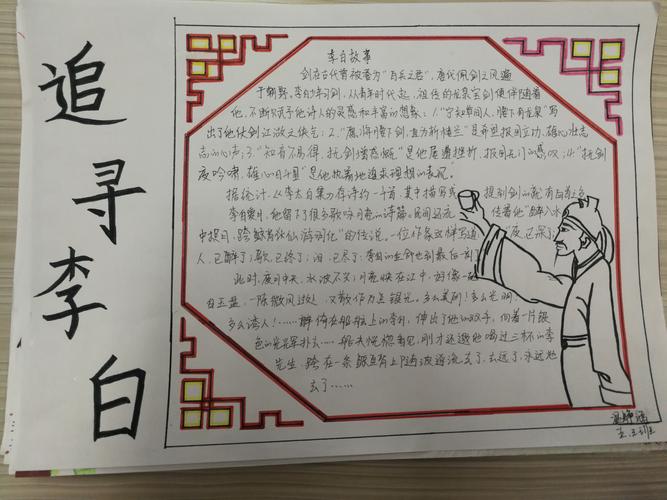 追寻李白
李白故事
剑在古代曾被誉为“百兵之君”，唐代佩剑之风遍
于朝野，李白少年习剑，从青年时代起，祖传的龙泉宝剑便伴随着
他，不断赋予他诗人的灵感和丰富的想象：1.“宁知草间人，腰下有龙泉”写
出了他仗剑江湖之侠气；2.“愿将腰下剑，直为斩楼兰”是希望报国立功，雄心壮志
志的心声；3.“知音不易得，抚剑增感慨”是他屡遭挫折，报国无门的感叹；4.“抚剑
夜吟啸，雄心日千里”是他执着地追求理想的表现。
据统计，从李太白集为存诗约一千首，其中描写或 提到剑的就有
李白喪月，他留下了很多歌咏月亮的诗篇，民间还流 传着他“醉入水
中捉月，跨鲸背张仙游羽化”的传说。一位作家这样写道
人，已醉了；歌，已终了；泪，已尽；李白的生命也到最后一刻
此时，夜月中天，水波不兴，月亮映在江中，好像一
白玉盘，一阵微风过处，又散作万点银光。多么美丽！多么光明，
多么诱人！……醉倚在船舷上的李白，伸出了他的双手，向着一片银
色的光辉扑去……船夫恍惚看见，刚才还邀他喝过三杯的李
先生，跨在一条 上随波道流去了，去远了，永远地
去了……